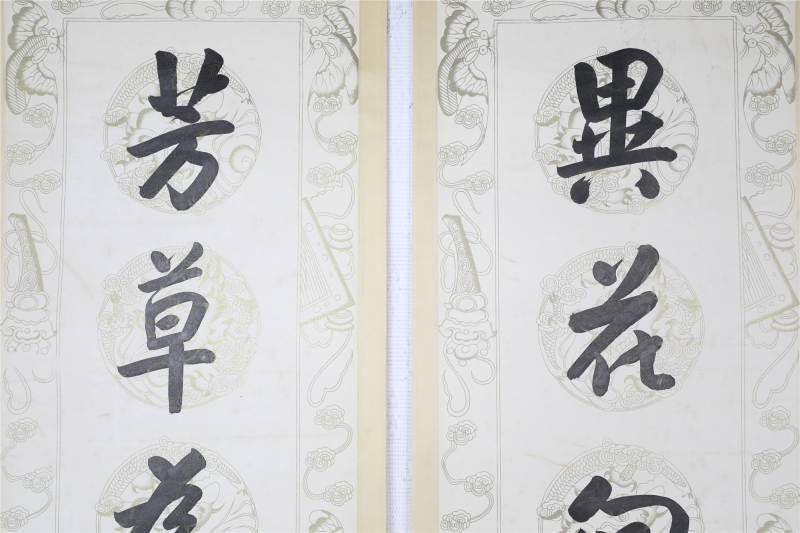 異花
芳草